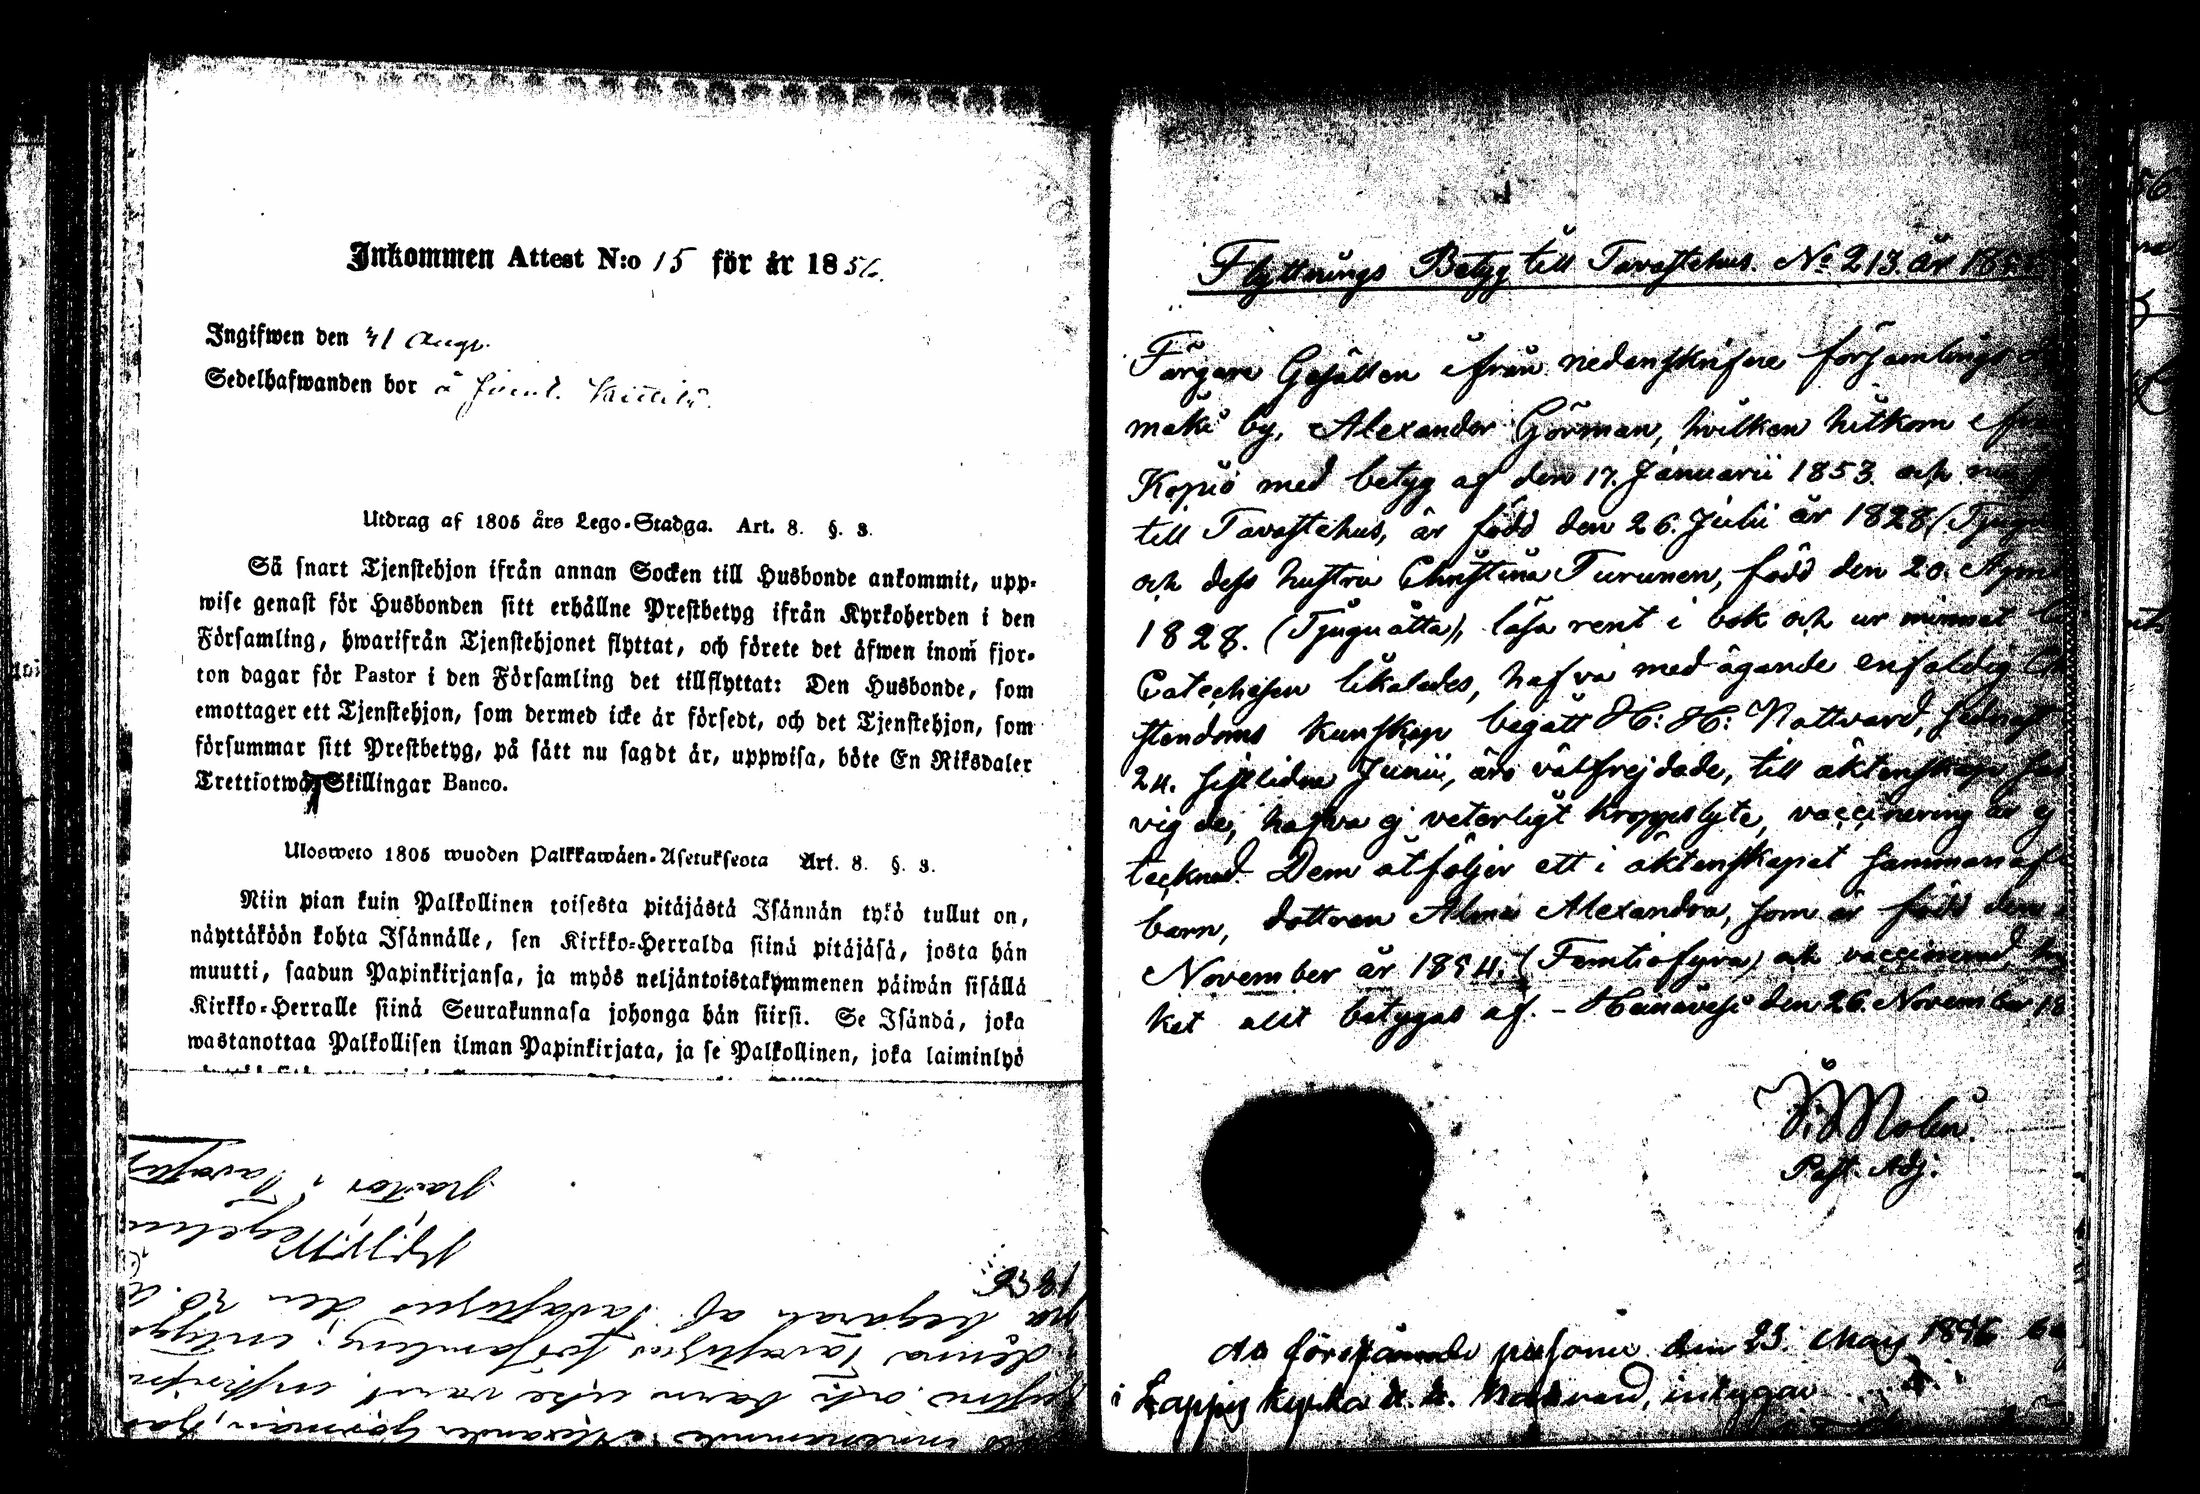 Inkommen Attest N:o 15 för år 1856.
Ingifwen den 31 Augr.
Sedelhafwanden bor å
Utdrag af 1805 års Lego-Stadga. Art. 8. §. 3.
Så snart Tjenstehjon ifrån annan Socken till Husbonde ankommit, upp-
wise genast för Husbonden sitt erhållne Prestbetyg ifrån Kyrkoherden i den
Församling, hwarifrån Tjenstehjonet flyttat, och förete det äfwen inom̄ fjor-
ton dagar för Pastor i den Församling det tillflyttat: Den Husbonde, som
emottager ett Tjenstehjon, som dermed icke är försedt, och det Tjenstehjon, som
försummar sitt Prestbetyg, på sätt nu sagdt är, uppwisa, böte En Riksdaler
Trettiotwå Skillingar Banco.
Ulosweto 1805 wuoden Palkkawäen-Asetuksesta Art. 8. §. 3.
Niin pian kuin Palkollinen toisesta pitäjästä Isännän tykö tullut on,
näyttäköön kohta Isännälle, sen Kirkko-Herralda siinä pitäjäsä, josta hän
muutti, saadun Papinkirjansa, ja myös neljäntoistakymmenen päiwän sisällä
Kirkko-Herralle siinä Seurakunnasa johonga hän siirsi. Se Isändä, joka
wastanottaa Palkollisen ilman Papinkirjata, ja se Palkollinen, joka laiminlyö
innenämnde Alexander Görman, dess
hustru och barn icke varit inskrifne
i denna Tavastehus församling; intygar
på begäran af Tavastehus den 20.
1856
Pastor i Tavastehus
Flyttnings Betyg till Tavastehus. No 213. år 185
Färgare Gesällen ifrån nedanskrifne församlings
mäki by, Alexander Görman, hvilken hitkom ifrån
Kopio med betyg af den 17. Januarii 1853. och nu
till Tavastehus, är född den 26. Julii år 1828. (Tjugu
och dess hustru Christina Turunen, född den 20.
1828. (Tjuguåtta), läsa rent i bok och ur minnet
Catechesen likaledes, hafva med ägande enfaldig
stendoms kunskap begått H: H: Nattvard, sednast
24. sistlidne Junii, äro välfrejdade, till äktenskap
vigde, hafva ej veterligt kroppslyte, vaccinering är ej
tecknad. Dem åtföljer ett i äktenskapet sammanaflat
barn, dottren Alma Alexandra, som är född den
November år 1854. (Femtiofyra) och vaccinerad,
ket allt betygas af. - Heinävesi den 26. November 18
Molin.
Past. Adj:
Att förestående personer den 25. Maj 1856
i Lappis kyrka H. H. Nattvard, intygar